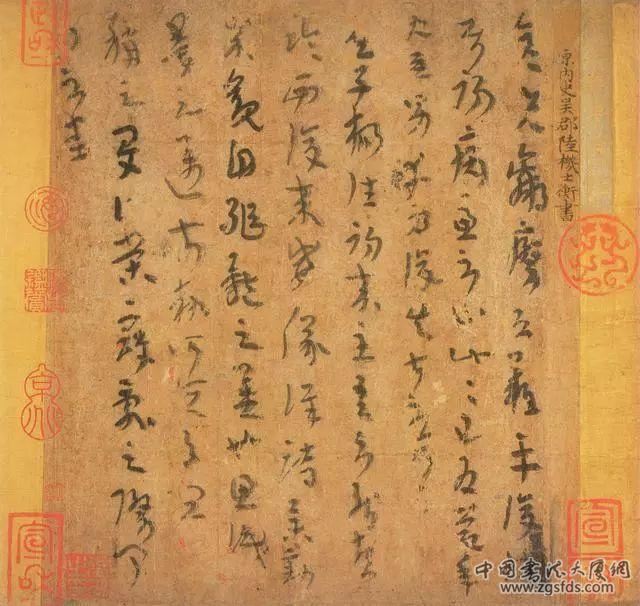 原内史吳郡陸機士衡書
彥先羸瘵恐難平復
往屬初病慮不止此此已為慶承
使唯男幸為復失前憂耳
吳子楊往初來主吾不能盡
臨西復來威儀詳跱舉動
成觀自軀體之美也思識
量之邁前執所恒有宜
稱之夏伯榮寇亂之際聞
問不悉
宣
中国書法大厦網
www.zgsfds.com